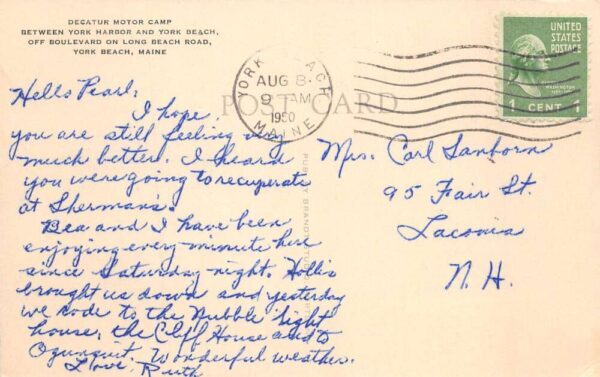 DECATUR MOTOR CAMP
BETWEEN YORK HARBOR AND YORK BEACH,
OFF BOULEVARD ON LONG BEACH ROAD,
YORK BEACH, MAINE
UNITED STATES
POSTAGE
WASHINGTON
1 CENT 1
YORK BEACH
AUG 8
9 AM
1950
MAINE
POST CARD
Hello Pearl,
I hope
you are still feeling very
much better. I heard
you were going to recuperate
at Sherman's.
Bea and I have been
enjoying every minute here
since Saturday night. Hollis
brought us down and yesterday
we rode to the Nubble Light
house, the Cliff House and to
Ogunquit. Wonderful weather.
Love, Ruth
Mrs. Carl Sanborn
95 Fair St.
Laconia
N. H.